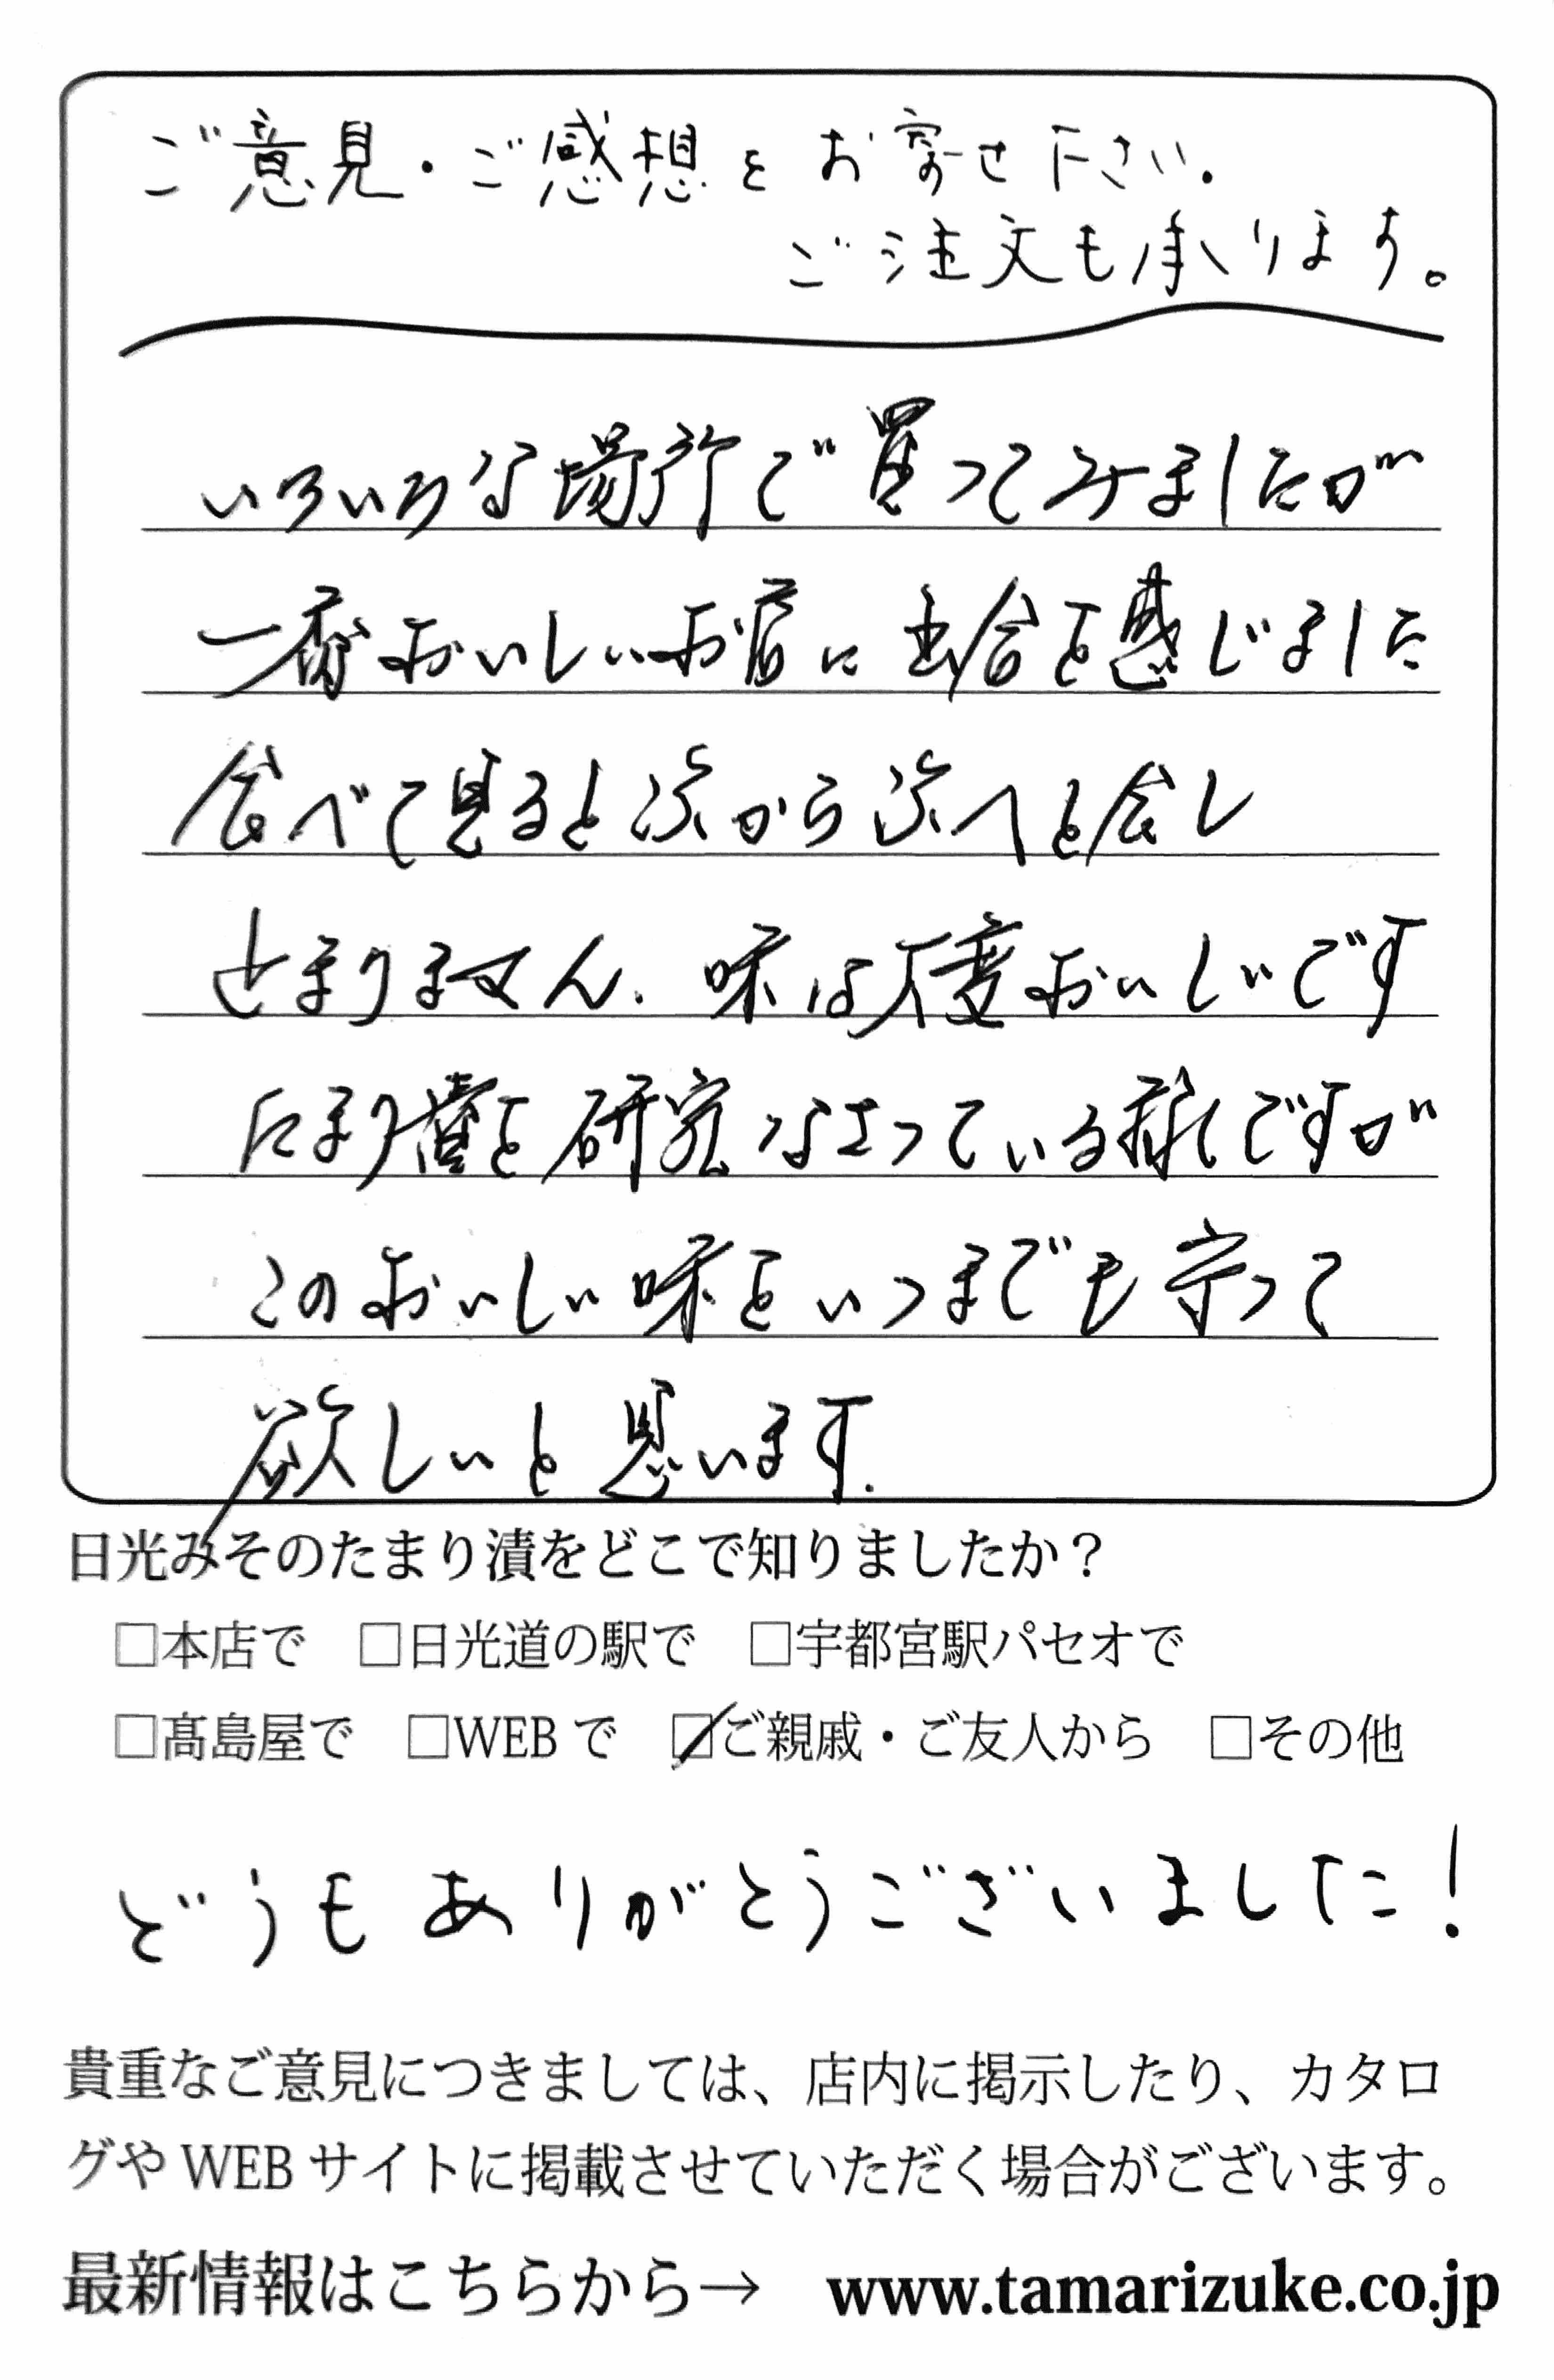 ご意見・ご感想をお寄せ下さい.
ご注文も承ります。
いろいろな場所で買ってみましたが
一番おいしいお店に出合を感じました
食べて見ると次から次へと食し
とまりません. 味は大変おいしいです
たまり漬を研究なさっている様ですが
このおいしい味をいつまでも守って
欲しいと思います.
日光みそのたまり漬をどこで知りましたか？
□本店で □日光道の駅で □宇都宮駅パセオで
□髙島屋で □WEBで ☑ご親戚・ご友人から □その他
どうもありがとうございました!
貴重なご意見につきましては、店内に掲示したり、カタロ
グやWEBサイトに掲載させていただく場合がございます。
最新情報はこちらから→ www.tamarizuke.co.jp